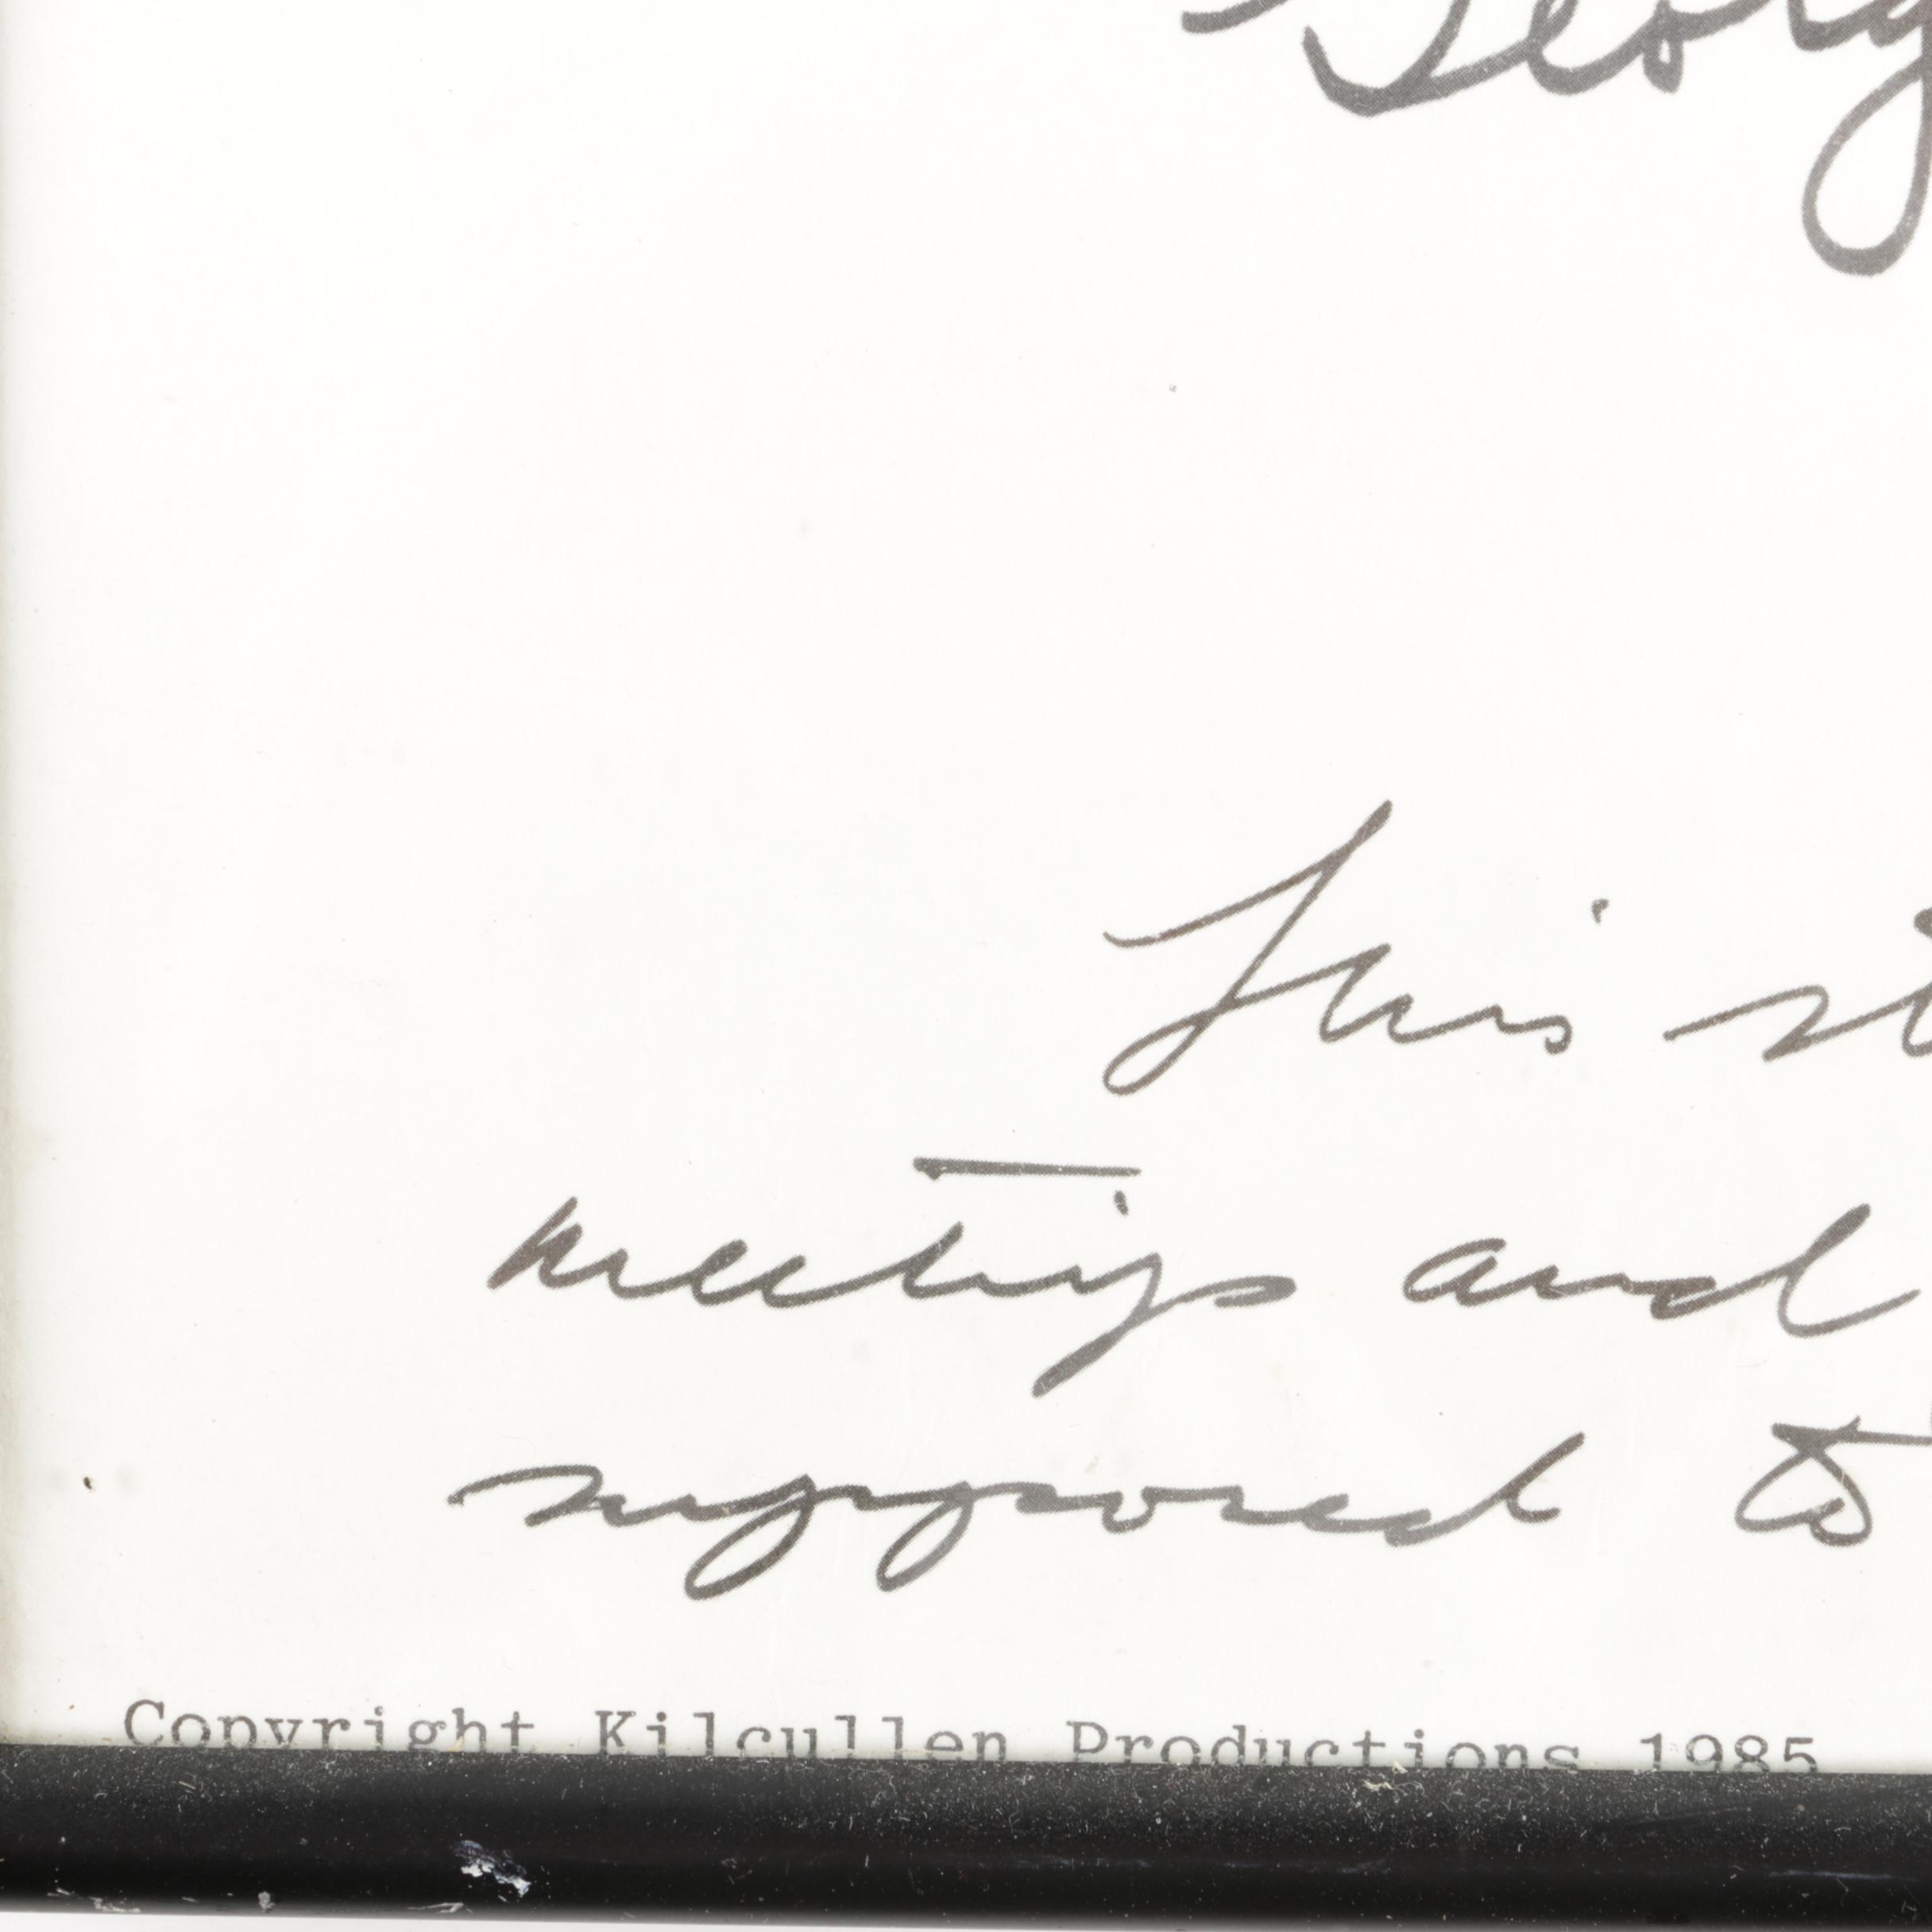 Georg
This st
meetings and
supposed to
Copyright Kilcullen Productions 1985